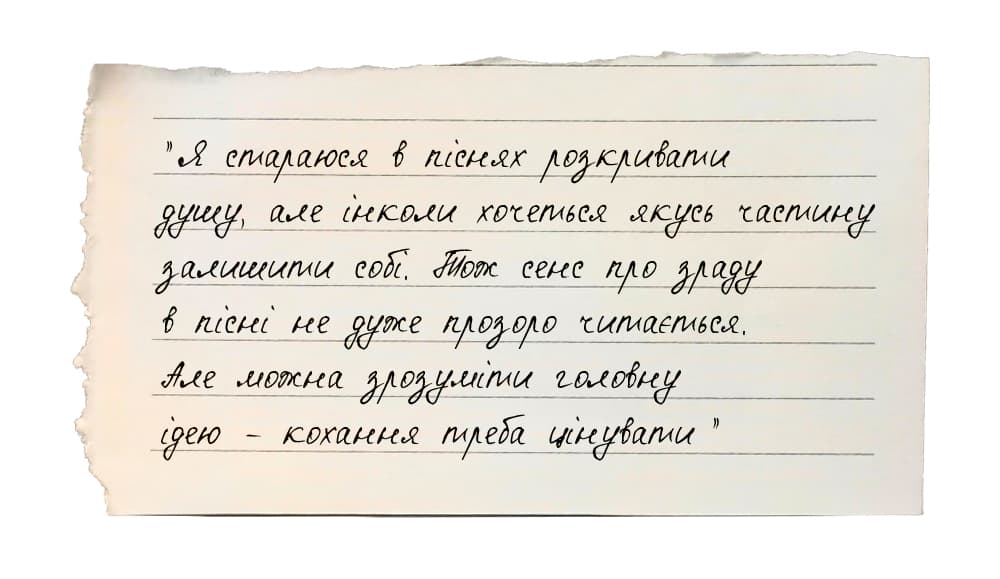 "Я стараюся в піснях розкривати
душу, але інколи хочеться якусь частину
залишити собі. Тож сенс про зраду
в пісні не дуже прозоро читається.
Але можна зрозуміти головну
ідею - кохання треба цінувати"